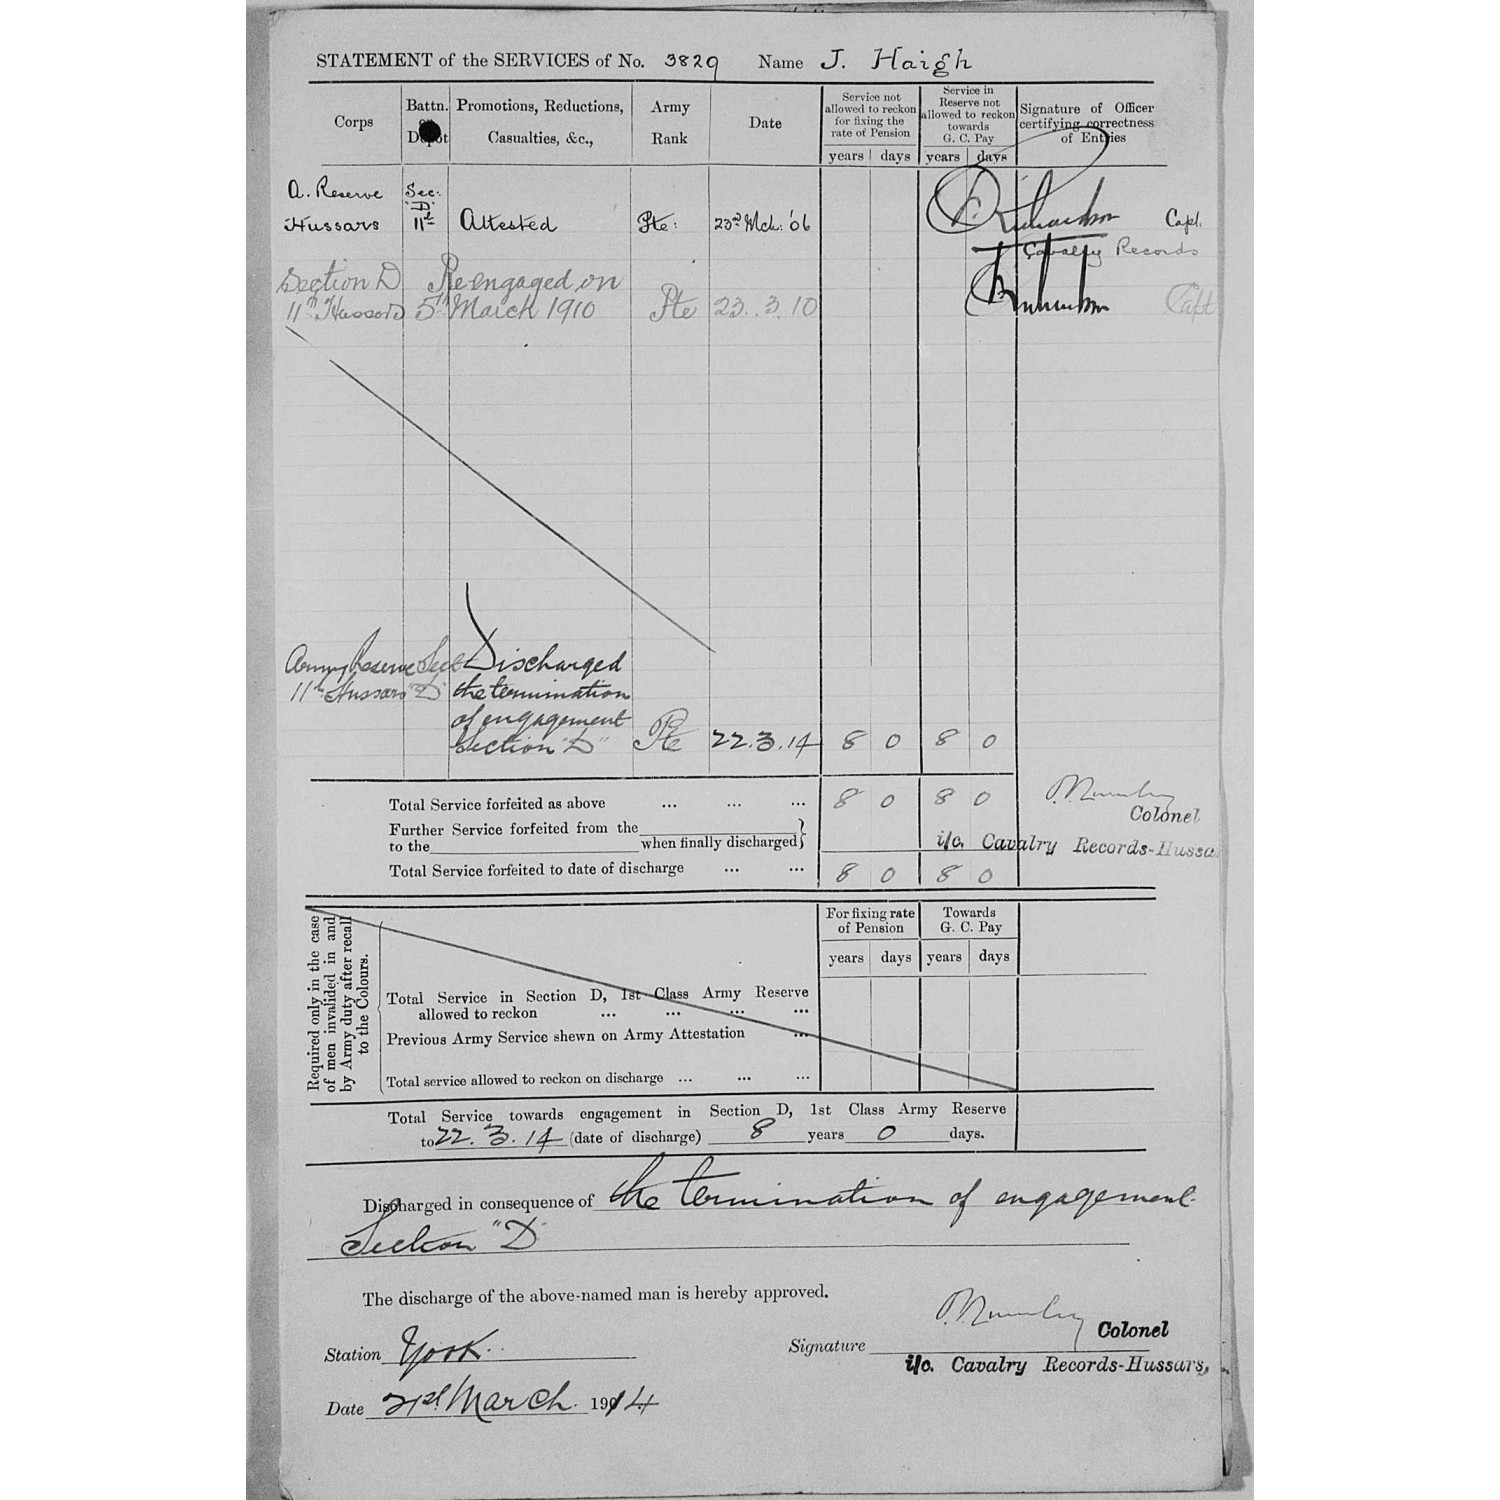 STATEMENT of the SERVICES of No. 3829 Name J. Haigh
Corps
Battn. Depot
Promotions, Reductions, Casualties, &c.,
Army Rank
Date
Service not allowed to reckon for fixing the rate of Pension
Service in Reserve not allowed to reckon towards G. C. Pay
Signature of Officer certifying correctness of Entries
years days years days
A. Reserve Sec: "D"
Hussars 11th Attested Pte: 23rd Mch: '06 Richardson Capt.
Cavalry Records
Section D Re-engaged on
11th Hussars 5th March 1910 Pte 23.3.10 Richardson Capt
Army Reserve Sect Discharged
11th Hussars "D" the termination
of engagement
Section "D" Pte 22.3.14 8 0 8 0
Total Service forfeited as above ... ... ... 8 0 8 0
Colonel
Further Service forfeited from the
to the when finally discharged}
i/c. Cavalry Records-Hussa
Total Service forfeited to date of discharge ... ... 8 0 8 0
Required only in the case
of men invalided in and
by Army duty after recall
to the Colours.
For fixing rate of Pension
Towards G. C. Pay
years days years days
Total Service in Section D, 1st Class Army Reserve
allowed to reckon ... ... ... ...
Previous Army Service shewn on Army Attestation ...
Total service allowed to reckon on discharge ... ... ...
Total Service towards engagement in Section D, 1st Class Army Reserve
to 22.3.14 (date of discharge) 8 years 0 days.
Discharged in consequence of the termination of engagement
Section "D"
The discharge of the above-named man is hereby approved.
Station York.
Signature
Colonel
i/c. Cavalry Records-Hussars,
Date 21st March. 1914